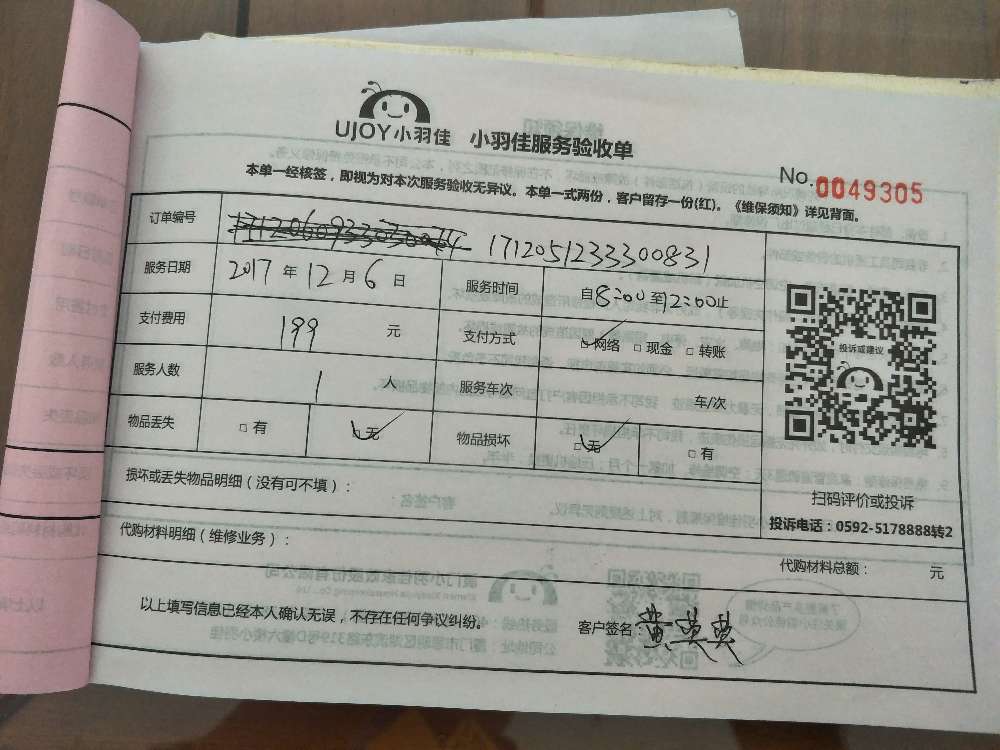 UJOY小羽佳 小羽佳服务验收单
No.0049305
本单一经核签，即视为对本次服务验收无异议。本单一式两份，客户留存一份(红)。《维保须知》详见背面。
订单编号 1712051233300831
服务日期 2017年12月6日 服务时间 自8:00至12:00止
支付费用 199 元 支付方式 网络 现金 转账
服务人数 1 人 服务车次 车/次
物品丢失 有 无 物品损坏 无 有
投诉或建议
扫码评价或投诉
投诉电话：0592-5178888转2
损坏或丢失物品明细（没有可不填）：
代购材料明细（维修业务）：
代购材料总额： 元
以上填写信息已经本人确认无误，不存在任何争议纠纷。
客户签名：黄